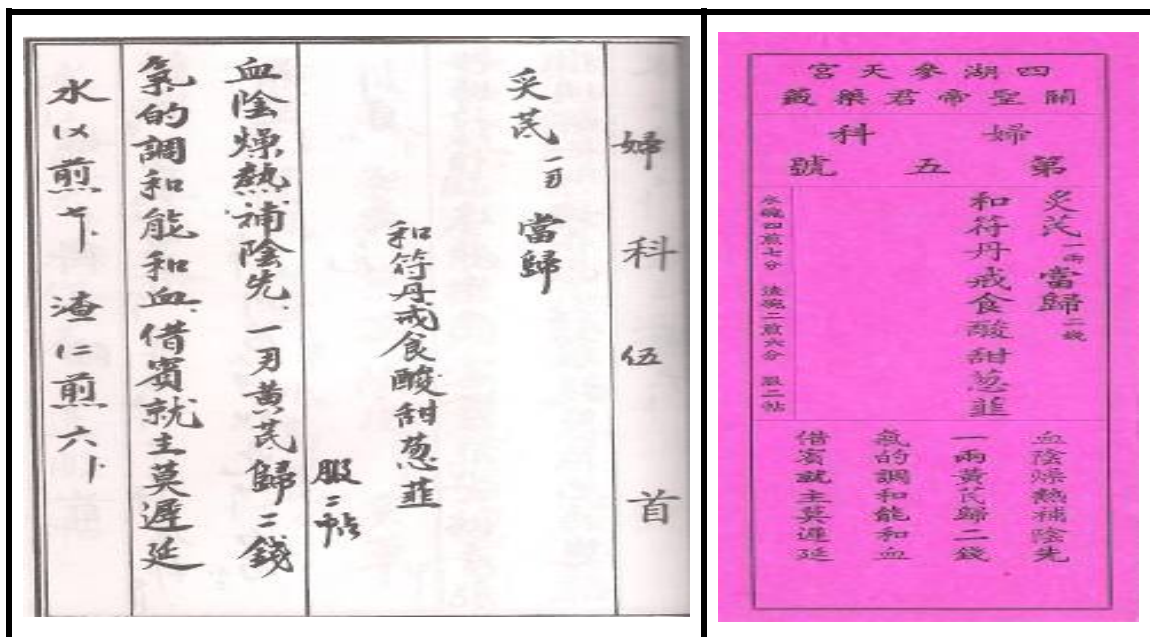 婦科伍首
炙芪 一刄 當歸
和符丹戒食酸甜葱韮
服二帖
血陰燥熱補陰先一刄黃芪歸二錢
氣的調和能和血借賓就主莫遲延
水煎 渣煎六
四湖參天宮
關聖帝君藥籤
婦科
第五號
炙芪一兩當歸二錢
和符丹戒食酸甜葱韮
水碗四煎七分 渣碗二煎六分 服二帖
血陰燥熱補陰先
一兩黃芪歸二錢
氣的調和能和血
借賓就主莫遲延